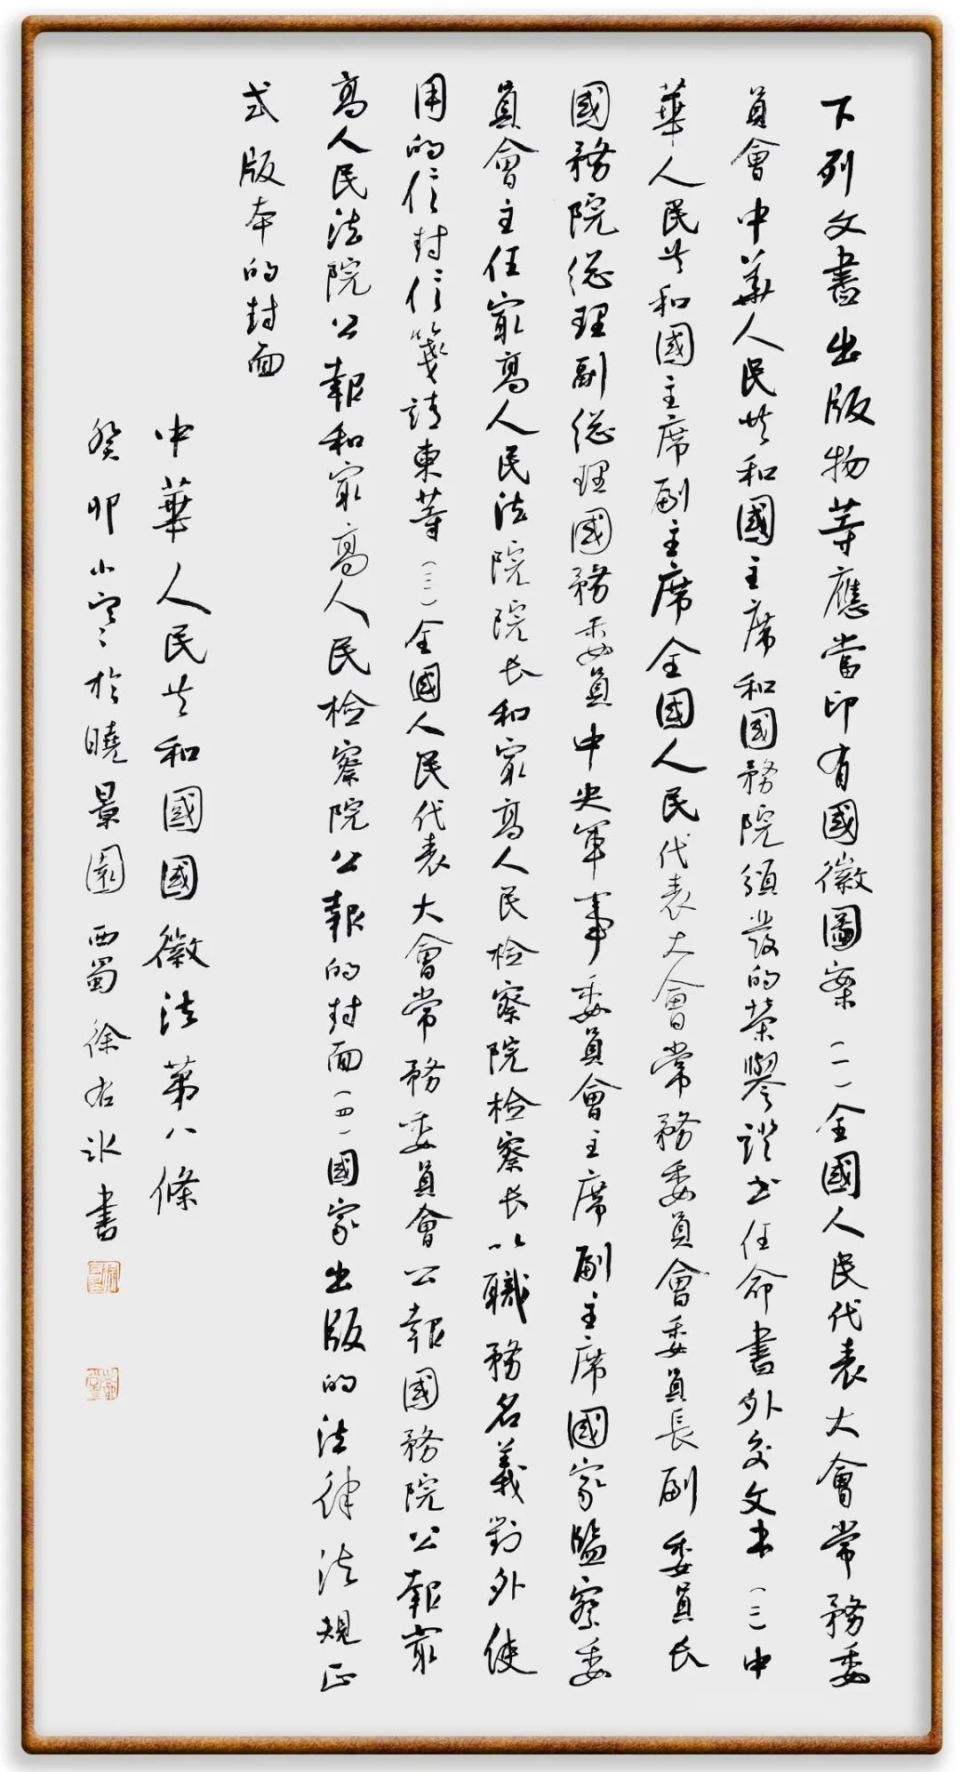 下列文書出版物等應當印有國徽圖案（一）全國人民代表大會常務委
員會中華人民共和國主席和國務院頒發的榮譽證書任命書外交文書（二）中
華人民共和國主席副主席全國人民代表大會常務委員會委員長副委員長
國務院總理副總理國務委員中央軍事委員會主席副主席國家監察委
員會主任最高人民法院院長和最高人民檢察院檢察長以職務名義對外使
用的信封信箋請柬等（三）全國人民代表大會常務委員會公報國務院公報最
高人民法院公報和最高人民檢察院公報的封面（四）國家出版的法律法規正
式版本的封面
中華人民共和國國徽法第八條
癸卯小寒於曉景園西蜀徐右冰書